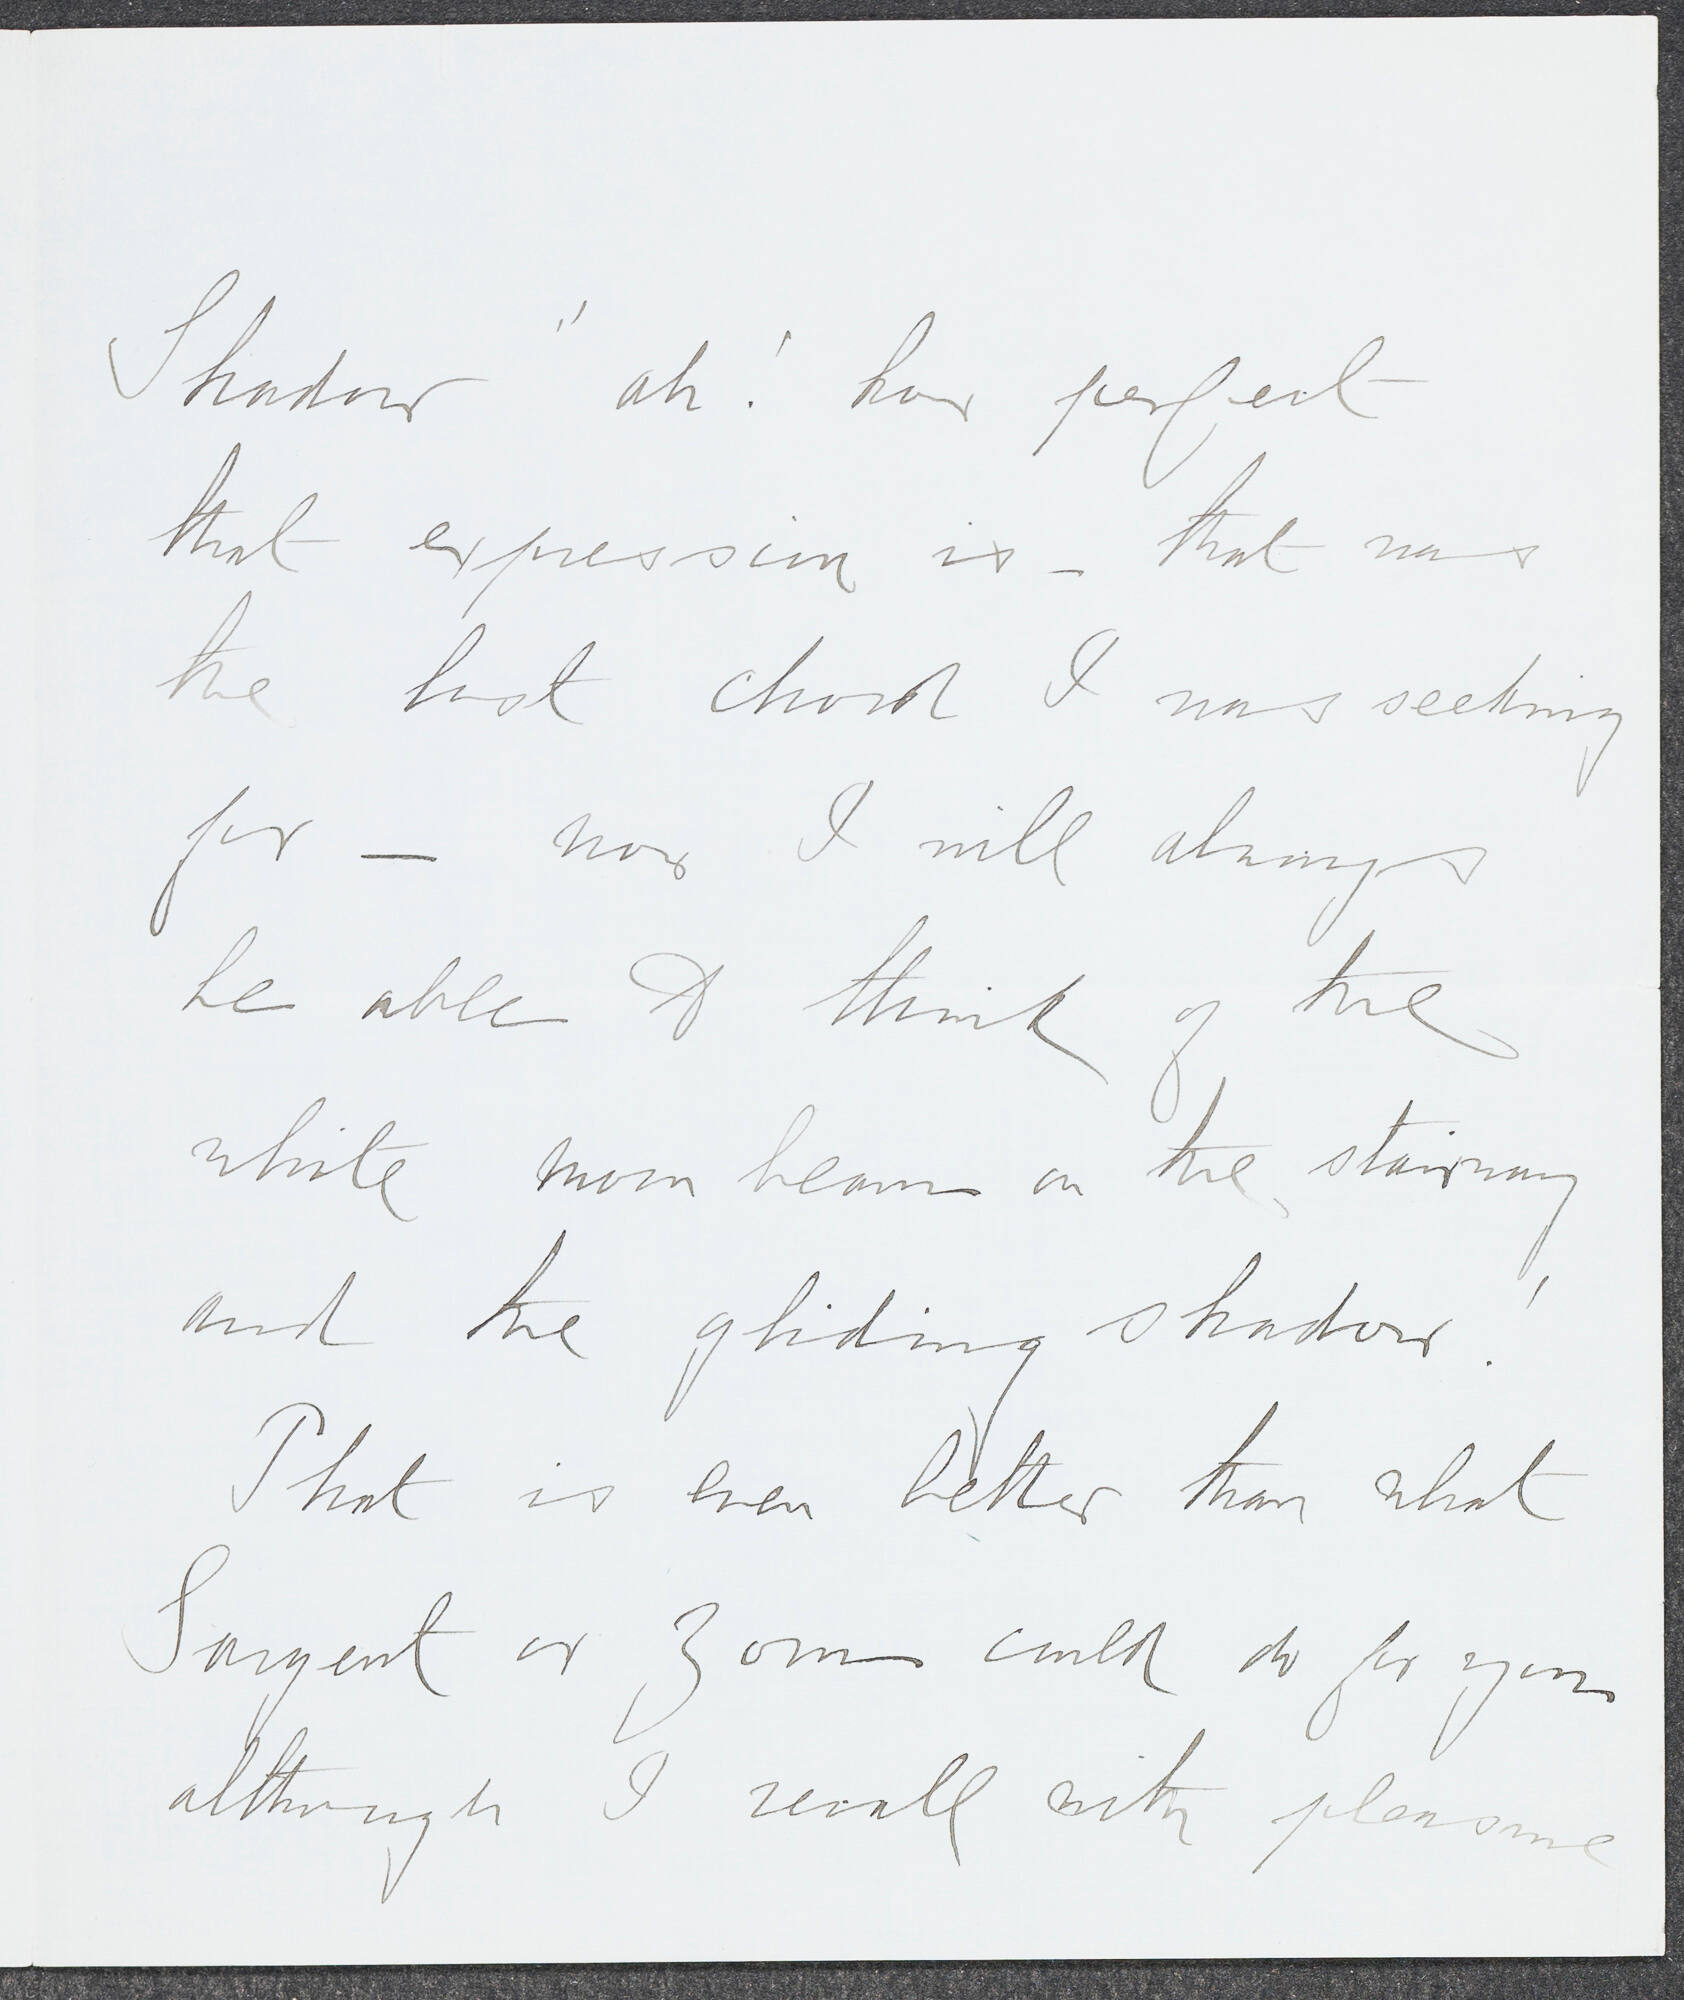 Shadow" ah! how perfect
that expression is – that was
the last chord I was seeking
for – now I will always
be able to think of the
white moon beam on the stairway
and the gliding shadow!
That is even better than what
Sargent or Zorn could do for you
although I recall with pleasure